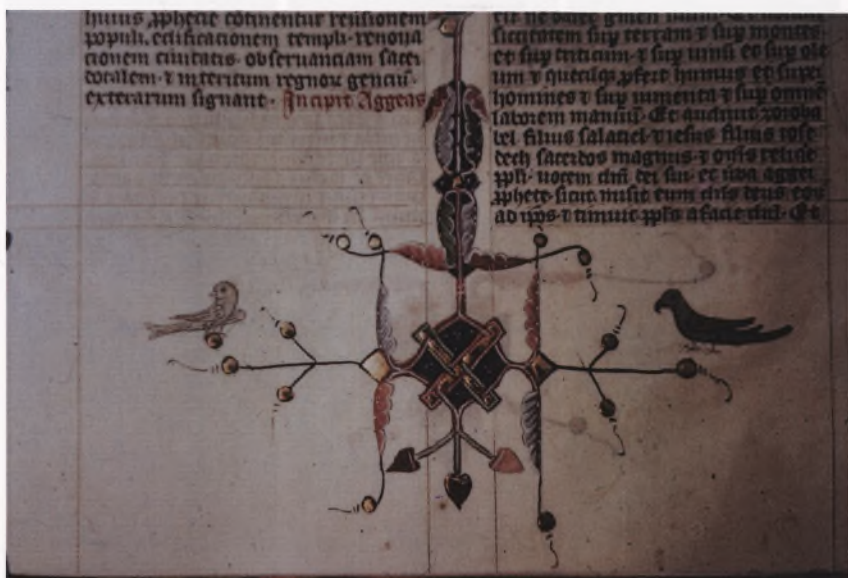 huius ꝓphetie cōtinentur reuisionem
populi. edificationem templi. renoua
cionem ciuitatis. obseruanciam sacer
dotalem. ⁊ interitum regnoꝝ genciū.
exterarum signant. Incipit Aggeus
siccitatem suꝑ terram ⁊ suꝑ montes.
et suꝑ triticum. ⁊ suꝑ uinū et suꝑ ole
um ⁊ quecūqꝫ ꝓfert humus et suꝑ
homines ⁊ suꝑ iumenta ⁊ suꝑ omnē
laborem manuū. Et audiuit zoroba
bel filius salatiel. ⁊ iesus filius iose
dech sacerdos magnus. ⁊ om̄s reliqe
ppl̄i. uocem dn̄i dei sui. et u̇ba aggei
ꝓphete. sicut misit eum dn̄s deus eoꝝ
ad ip̄os. ⁊ timuit ppl̄s a facie dn̄i. Et